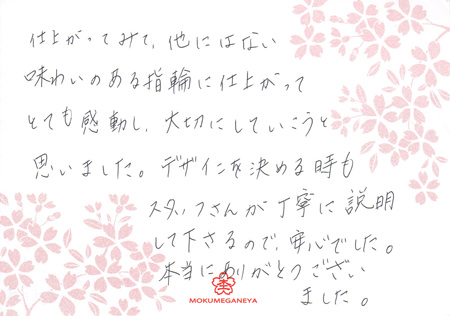 仕上がってみて、他にはない
味わいのある指輪に仕上がって
とても感動し、大切にしていこうと
思いました。デザインを決める時も
スタッフさんが丁寧に説明
して下さるので、安心でした。
本当にありがとうござい
ました。
MOKUMEGANEYA